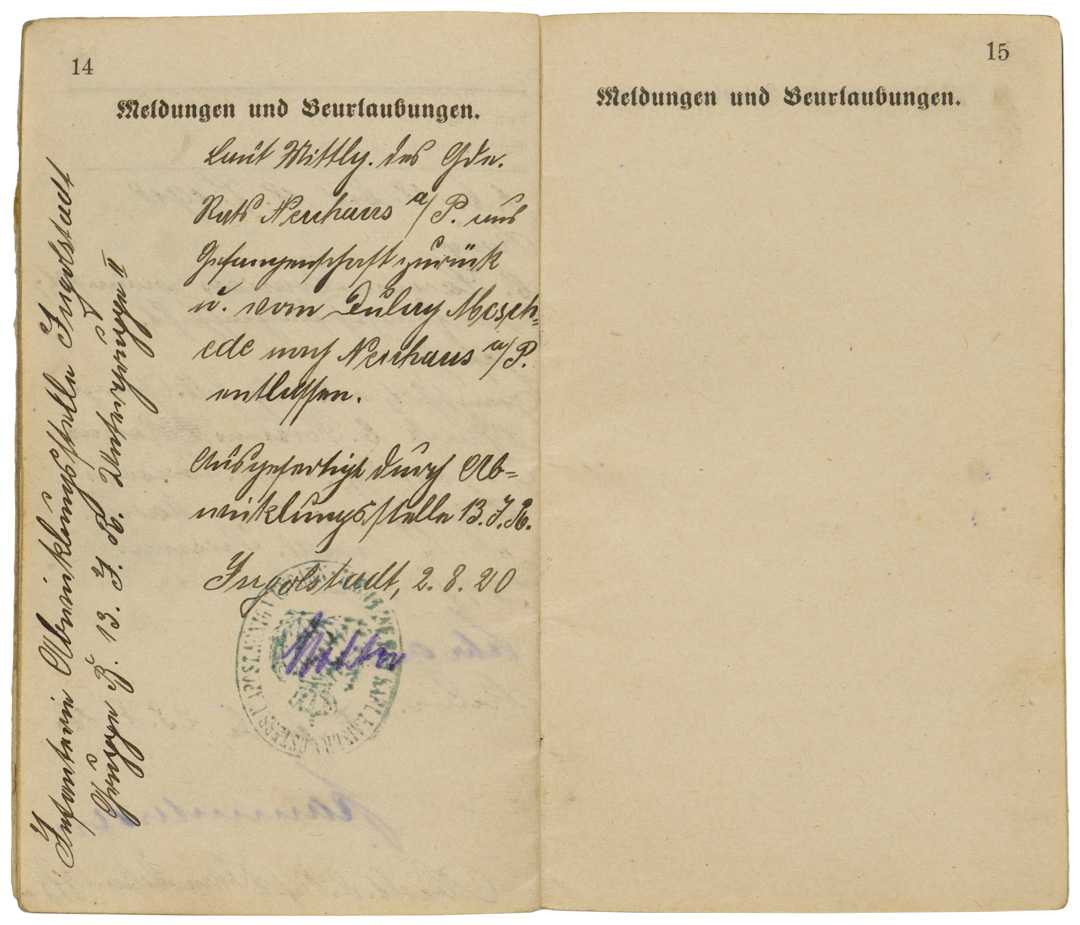 14
Meldungen und Beurlaubungen.
Laut Mittlg. des Gde.
Rats Neuhaus a/P. aus
Gefangenschaft zurück
u. vom Dulag Mesch=
ede nach Neuhaus a/P.
entlassen.
Ausgefertigt durch Ab=
wicklungsstelle 13. J. R.
Ingolstadt, 2. 8. 20
Infanterie Abwicklungsstelle Ingolstadt
Gruppe B. 13. J. R. Untergruppe II
15
Meldungen und Beurlaubungen.